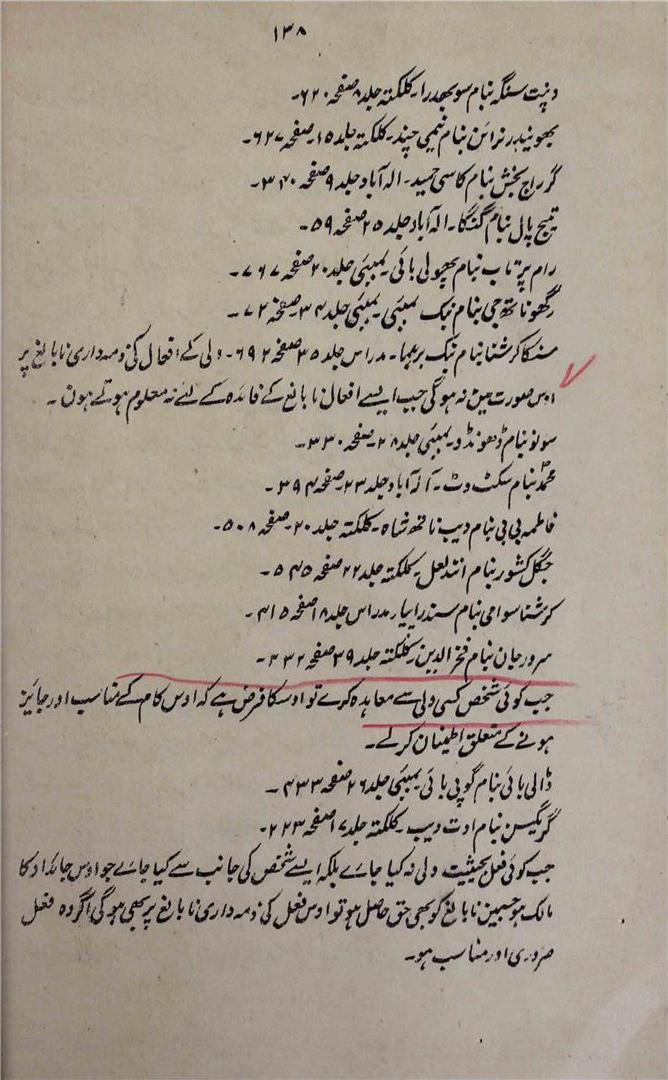 ۱۳۸
دنپت سنگہ بنام سوبھدرا۔ کلکتہ جلد ۸ صفحہ ۶۲۰۔
بھوپنیدر نرائن بنام نیمی چند۔ کلکتہ جلد ۱۵۔ صفحہ ۶۲۷۔
گرراج بخش بنام کاسی حمید۔ الہ آباد جلد ۹ صفحہ ۳۴۰۔
تیج پال بنام گنگا۔ الہ آباد جلد ۲۵ صفحہ ۵۹۔
رام پرتاب بنام پھولی بائی۔ بمبئی جلد ۲۰ صفحہ ۷۶۷۔
رگھوناتھ جی بنام بنک بمبئی۔ بمبئی جلد ۳۴۔ صفحہ ۷۲۔
کرشنا بنام بنک برہما۔ مدراس جلد ۳۵ صفحہ ۶۹۲۔ ولی کے افعال کی ذمہ داری نابالغ پر
اوس صورت مین نہ ہوگی جب ایسے افعال نابالغ کے فائدہ کے لئے نہ معلوم ہوتے ہون۔
سونو بنام ڈھونڈو۔ بمبئی جلد ۲۸۔ صفحہ ۳۳۰۔
محمد بنام سکٹ دٹ۔ آلہ آباد جلد ۲۳۔ صفحہ ۳۹۴۔
فاطمہ بی بی بنام دیب ناتھ شاہ۔ کلکتہ جلد ۲۰۔ صفحہ ۵۰۸۔
جگل کشور بنام انند لعل۔ کلکتہ جلد ۲۲ صفحہ ۵۴۵۔
کرشنا سوامی بنام سندراپیار مدراس جلد ۱۸ صفحہ ۴۱۵۔
سرورجان بنام فخرالدین۔ کلکتہ جلد ۳۹ صفحہ ۲۳۲۔
جب کوئی شخص کسی ولی سے معاہدہ کرے تو اوسکا فرض ہے کہ اوس کام کے مناسب اور جائز
ہونے کے متعلق اطمینان کرلے۔
ڈالی بائی بنام گوپی بائی۔ بمبئی جلد ۲۶ صفحہ ۴۳۳۔
گریگسن بنام ادت دیب۔ کلکتہ جلد ۱۷ صفحہ ۲۲۳۔
جب کوئی فعل بحیثیت ولی نہ کیا جاے بلکہ ایسے شخص کی جانب سے کیا جاے جو اوس جائداد کا
مالک ہو جسمین نابالغ کو بھی حق حاصل ہو تو اوس فعل کی ذمہ داری نابالغ پر بھی ہوگی اگر وہ فعل
ضروری اور مناسب ہو۔